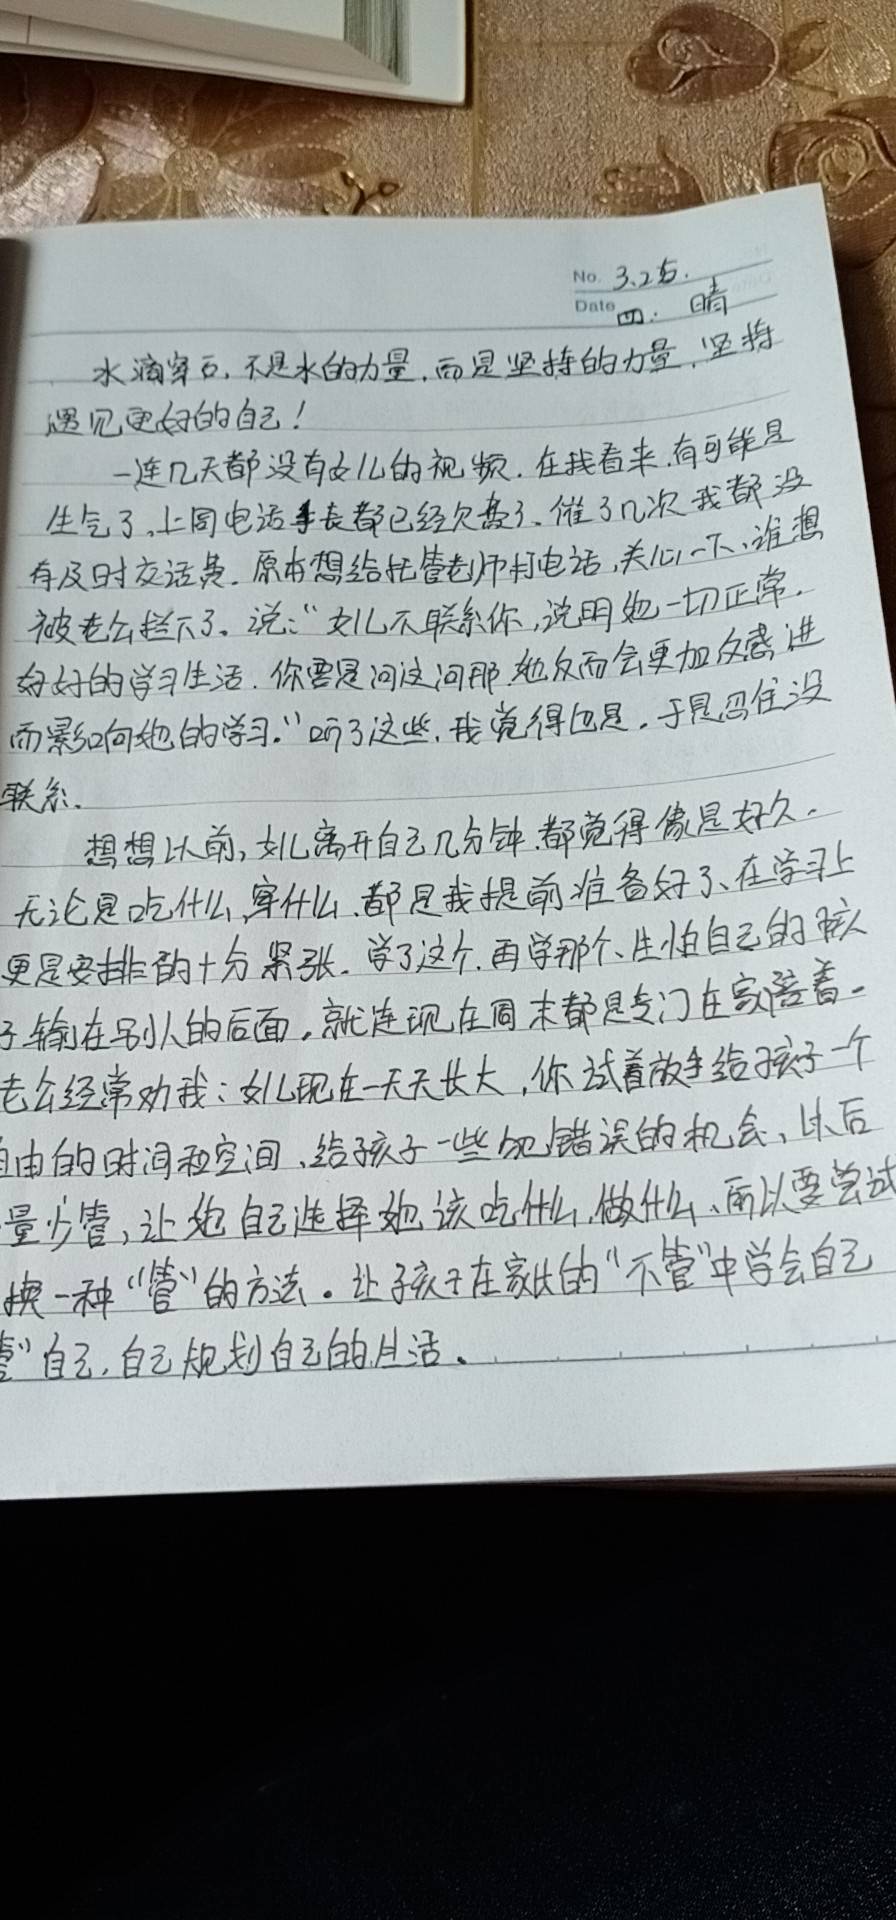 No. 3.25.
Date 四. 晴
水滴穿石,不是水的力量,而是坚持的力量,坚持
遇见更好的自己!
一连几天都没有女儿的视频.在我看来.有可能是
生气了,上周电话手表都已经欠费了、催了几次我都没
有及时交话费.原本想给托管老师打电话,关心一下、谁想
被老公拦下了。说:“女儿不联系你,说明她一切正常.
好好的学习生活.你要是问这问那.她反而会更加反感进
而影响她的学习.”听了这些.我觉得也是.于是忍住没
联系.
想想以前,女儿离开自己几分钟.都觉得像是好久.
无论是吃什么,穿什么.都是我提前准备好了、在学习上
更是安排的十分紧张.学了这个.再学那个、生怕自己的孩
子输在别人的后面.就连现在周末都是专门在家陪着.
老公经常劝我:女儿现在一天天长大,你试着放手给孩子一个
自由的时间和空间、给孩子一些犯错误的机会、以后
量少管,让她自己选择她该吃什么.做什么、所以要尝试
换一种“管”的方法.让孩子在家长的“不管”中学会自己
管”自己.自己规划自己的生活.